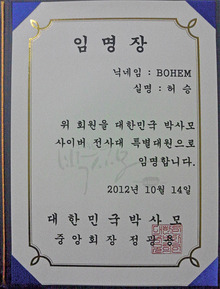 임명장
닉네임 : BOHEM
실명 : 허 승
위 회원을 대한민국 박사모
사이버 전사대 특별대원으로
임명합니다.
박사모
2012년 10월 14일
대한민국박사모
중앙회장 정광용